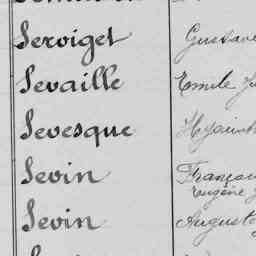 Serviget Gustave
Sevaille Emile
Sevesque Hyacinth
Sevin Françoi
Eugène
Sevin Auguste